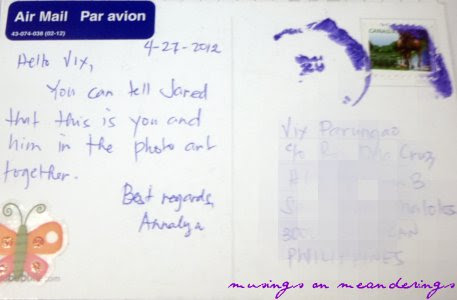 Air Mail Par avion
43-074-036 (02-12)
4-27-2012
Hello Vix,
You can tell Jared
that this is you and
him in the photo art
together.
Best regards,
Annalyza
CANADA
Vix Parungao
c/o Dela Cruz
PHILIPPINES
musings on meanderings